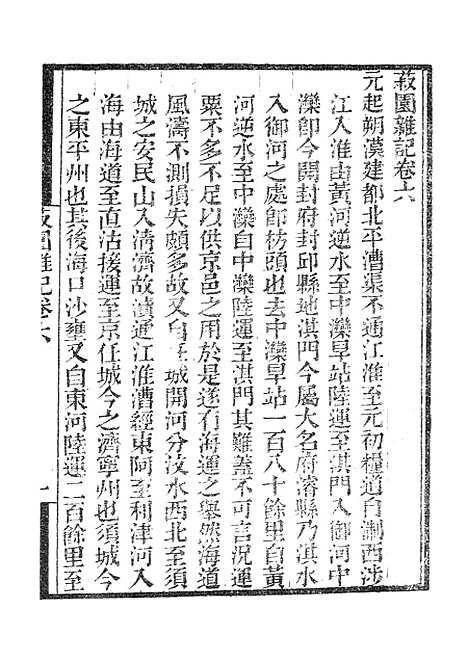 菽園雜記卷六
元起朔漠建都北平漕渠不通江淮至元初糧道自浙西涉
江入淮由黃河逆水至中灤旱站陸運至淇門入御河中
灤卽今開封府封邱縣地淇門今屬大名府濬縣乃淇水
入御河之處卽枋頭也去中灤旱站一百八十餘里自黃
河逆水至中灤自中灤陸運至淇門其難蓋不可言況運
粟不多不足以供京邑之用於是遂有海運之舉然海道
風濤不測損失頗多故又自任城開河分汶水西北至須
城之安民山入清濟故瀆通江淮漕經東阿至利津河入
海由海道至直沽接運至京任城今之濟寧州也須城今
之東平州也其後海口沙壅又自東河陸運二百餘里至
菽園雜記卷六
一